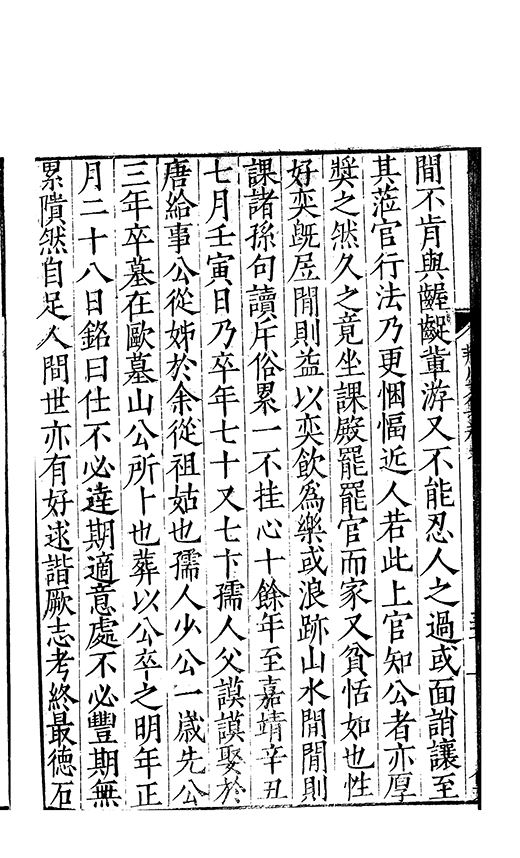 間不肯與齷齪輩游又不能忍人之過或面誚讓至
其蒞官行法乃更悃愊近人若此上官知公者亦厚
獎之然久之竟坐課殿罷罷官而家又貧恬如也性
好奕旣居閒則益以奕飲爲樂或浪跡山水閒閒則
課諸孫句讀斥俗累一不挂心十餘年至嘉靖辛丑
七月壬寅日乃卒年七十又七卞孺人父謨謨娶於
唐給事公從姊於余從祖姑也孺人少公一歲先公
三年卒墓在歐墓山公所卜也葬以公卒之明年正
月二十八日銘曰仕不必達期適意處不必豐期無
累隤然自足人間世亦有好逑諧厥志考終最德石